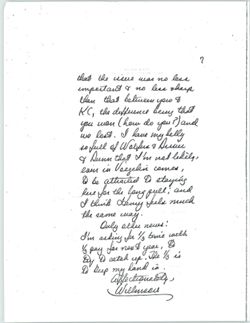 7
that the issue was no less
important & no less sharp
than that between you &
KC, the difference being that
you won (how do you?) and
we lost. I have my belly
so full of and
& Dunn that I'm not likely,
even in Voegelin comes,
to be attracted to staying
here for the long pull; and
I think Henry feels much
the same way.
Only other news:
I'm asking for ½ time with
½ pay for next year, to
try to catch up. The ½ is
to keep my hand in.
Affectionately,
Willmoore